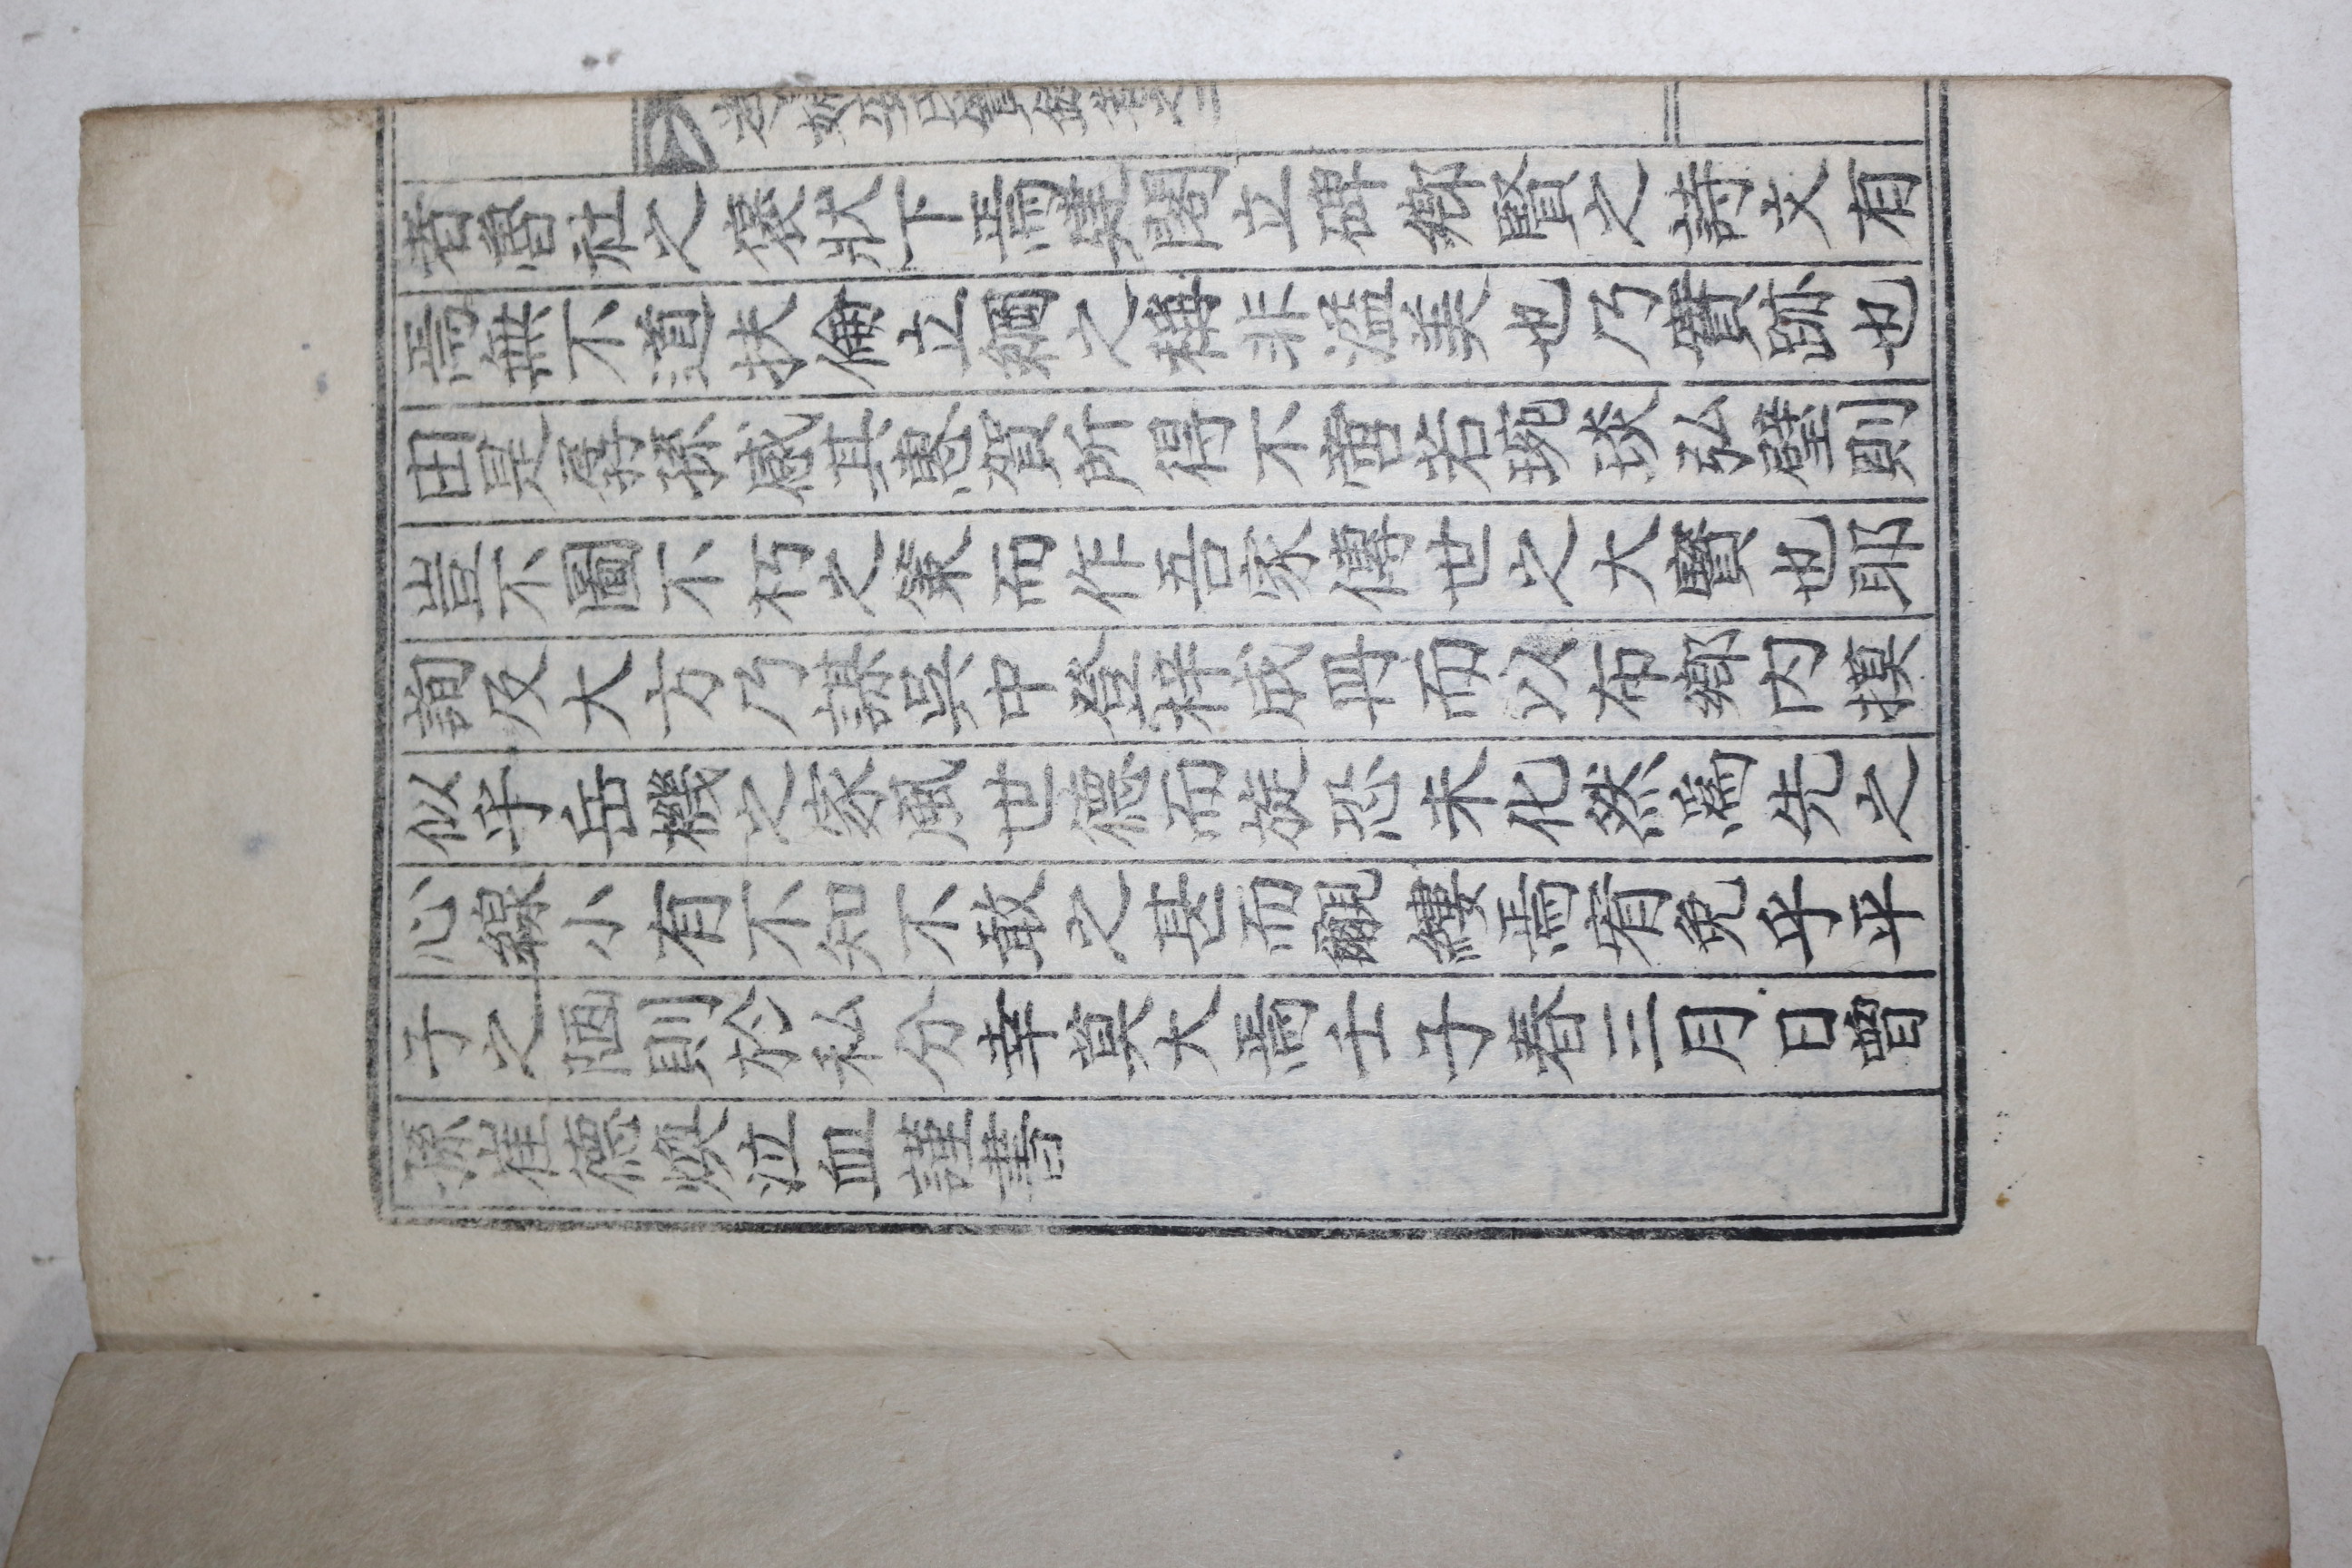 孝烈安氏實錄卷之二
者魯社之褒狀下焉建閣立碑鄉賢之詩文有
焉無不道扶倫立綱之稱非溢美也乃實跡也
由是孱孫感其惠賀所得不啻若琬琰弘璧則
豈不圖不朽之策而作吾家傳世之大寶也耶
詢及大方乃謀吳中登梓成冊而以布鄉內摸
似乎岳機之家風世德而旋恐未化然爲先之
心線小有不知不敢之甚而覼縷焉宥免乎平
子之陋則於私分幸莫大焉壬子春三月日曾
孫崔德煥泣血謹書